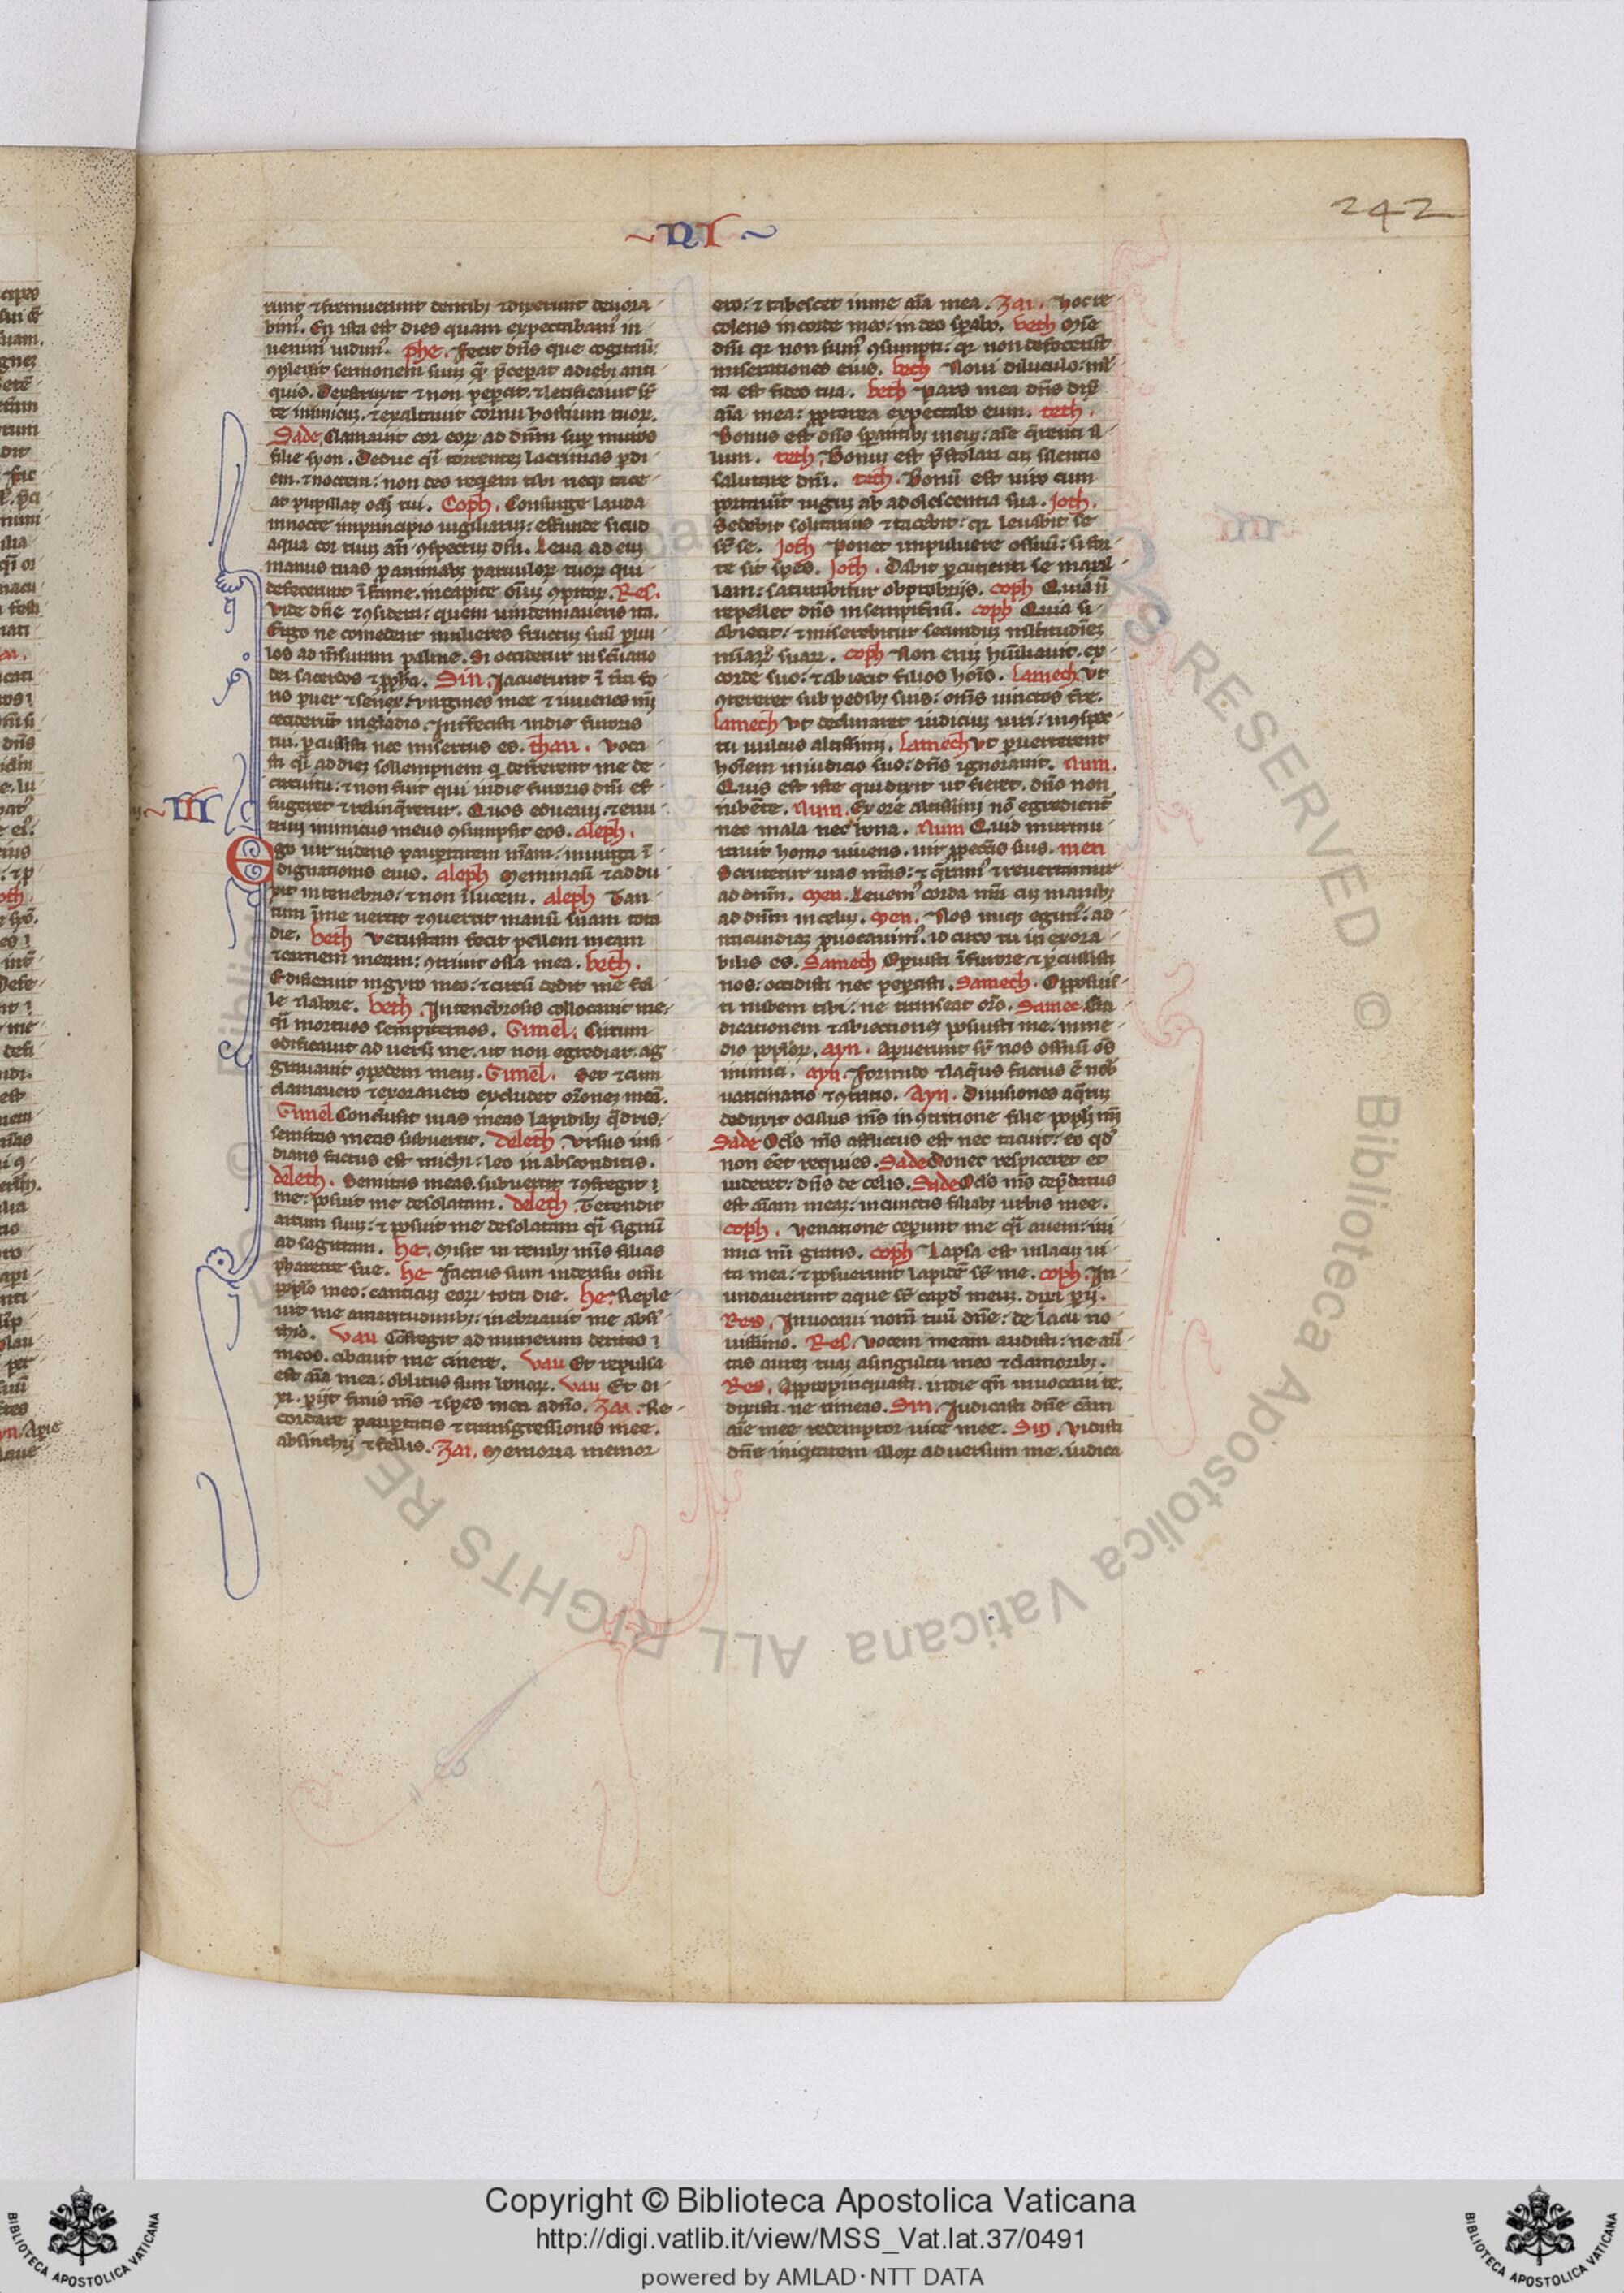 242
NI
runt ⁊ fremuerunt dentibꝫ ⁊ dixerunt deuora
bimꝰ. En ista est dies quam expectabamꝰ in
uenimꝰ uidimꝰ. phe. Fecit dn̄s que cogitauit
ꝯpleuit sermonem suuꝫ qͣ p̄ceperat a diebꝫ anti
quis. Destruxit ⁊ non pepercit. ⁊ letificauit sr̄
te inimicuꝫ. ⁊ exaltauit cornu hostium tuoꝝ.
Sade. Clamauit cor eoꝝ ad dn̄m suꝑ muros
filie syon. Deduc qͣi torrenteꝫ lacrimas ꝑ di
em. ⁊ noctem: non des reqiem tibi neqꝫ tace
at pupilla oculi tui. Coph. Consurge lauda
in nocte in principio uigiliarum: effunde sicud
aqua cor tuuꝫ an̄ ꝯspectuꝫ dn̄i. Leua ad euꝫ
manus tuas ꝓ animabꝫ paruuloꝝ tuoꝝ qui
defecerunt ī fame. in capite om̄iuꝫ ꝯpitoꝝ. Res.
Vide dn̄e ⁊ ꝯsidera: quem uindemiaueris ita.
Ergo ne comedent mulieres fructuꝫ suū paruu
los ad mēsuram palme. Si occiditur in sc̄uario
dei sacerdos ⁊ ꝓph̄a. Sin. Jacuerunt ī t̄ra fo
ris puer ⁊ senex. uirgines mee ⁊ iuuenes mei
ceciderūt in gladio. Interfecisti in die furoris
tui. ꝑcussisti nec misertus es. thau. Voca
sti qͣi ad dieꝫ sollempnem qui terrerent me de
circuitu: ⁊ non fuit qui in die furoris dn̄i ef
fugeret ⁊ relinq̄retur. Quos educaui ⁊ enu
triui inimicus meus ꝯsumpsit eos. aleph.
III
Ego uir uidens paupertatem meam: in uirga ī
dignationis eius. aleph Me minauit ⁊ addu
xit in tenebras: ⁊ non ī lucem. aleph Tan
tum ī me uertit ⁊ ꝯuertit manū suam tota
die. beth Vetustam fecit pellem meam
⁊ carnem meam: ꝯtriuit ossa mea. beth.
Edificauit in gyro meo: ⁊ circū dedit me fel
le ⁊ labore. beth. In tenebrosis collocauit me:
qͣi mortuos sempiternos. Gimel. Circum
edificauit aduersum me. ut non egrediar. ag
grauauit ꝯpedem meuꝫ. Gimel. Set ⁊ cum
clamauero ⁊ exorauero excludet or̄oneꝫ meā.
Gimel Conclusit uias meas lapidibꝫ q̄dris:
semitas meas subuertit. deleth. Vrsus insi
dians factus est michi: leo in absconditis.
deleth. Semitas meas subuertit ⁊ ꝯfregit
me: posuit me desolatam. deleth. Tetendit
arcum suuꝫ: ⁊ posuit me desolatam qͣi signū
ad sagittam. he. Misit in renibꝫ m̄is filias
pharetre sue. he Factus sum in derisu omni
pplo meo: canticuꝫ eoꝝ tota die. he. Reple
uit me amaritudinibꝫ: inebriauit me absi
thio. Vau Cōfregit ad numerum dentes
meos. cibauit me cinere. Vau Et repulsa
est aīa mea: oblitus sum bonoꝝ. Vau Et di
xi. ꝑijt finis m̄s ⁊ spes mea a dn̄o. Zai. Re
cordare paupertatis ⁊ transgressionis mee.
absinthij ⁊ fellis. Zai. Memoria memor
ero: ⁊ tabescet in me aīa mea. Zai. Hoc re
colens in corde meo: in deo sperabo. heth Mie
dn̄i qꝛ non sumꝰ ꝯsumpti: qꝛ non defecerūt
miserationes eius. heth Noui diluculo: ml̄
ta est fides tua. heth Pars mea dn̄s dix̄
aīa mea: ꝓpterea expectabo eum. teth.
Bonus est dn̄s sperantibꝫ in euꝫ: aīe q̄renti il
lum. teth. Bonuꝫ est p̄stolari cuꝫ silentio
salutare dn̄i. teth. Bonū est uiro cum
portauit iuguꝫ ab adolescentia sua. Joth.
Sedebit solitarius ⁊ tacebit: qꝛ leuabit se
sr̄ se. Joth Ponet in puluere os suū: si for
te sit spes. Joth. Dabit ꝑcutienti se maxil
lam: saturabitur obprobrijs. coph Quia n̄
repellet dn̄s in sempit̄nū. coph Quia si
abiecit: ⁊ miserebitur secundum ml̄titudīeꝫ
mīaꝝ suaꝝ. coph Non enī hūiliauit. ex
corde suo: ⁊ abiecit filios hoīs. Lamech Vt
ꝯtereret sub pedibꝫ suis: om̄s uinctos t̄re.
Lamech Vt declinaret iudiciuꝫ uiri: in ꝯspec
tu uultus altissimi. Lamech Vt ꝑuerterent
hoīem in iudicio suo: dn̄s ignorauit. Num.
Quis est iste qui dixit ut fieret. dn̄o non
iubēte. Num. Ex ore altissimi nō egredient̄
nec mala nec bona. Num Quid murmu
rauit homo uiuens. uir ꝓ peccatis suis. men
Scrutemur uias nr̄as: ⁊ q̄ramꝰ ⁊ reuertamur
ad dn̄m. Men. Leuemꝰ corda nr̄a cuꝫ manibꝫ
ad dn̄m in celuꝫ. Men. Nos iniq egimꝰ: ad
iracundiaꝫ ꝓuocauimꝰ. id circo tu in exora
bilis es. Samech Operuisti ī furore. ⁊ ꝑcussisti
nos: occidisti nec pepercisti. Samech. Opposuis
ti nubem tibi: ne transeat or̄o. Samec. Era
dicationem ⁊ abiectioneꝫ posuisti me. in me
dio pploꝝ. ayn. Aperuerunt sr̄ nos os suū om̄s
inimici. ayn. Formido ⁊ laq̄us factus ē nob̄
uaticinatio ⁊ ꝯtritio. Ayn. Diuisiones aq̄rum
deduxit oculus m̄s in ꝯtritione filie ppli mei
Sade Ocl̄s m̄s afflictus est nec tacuit: eo qd̓
non eēt requies. Sade Donec respiceret et
uideret: dn̄s de celis. Sade Ocl̄s m̄s dep̄datus
est aīam meaꝫ: in cunctis filiabꝫ urbis mee.
coph. Venatione ceperunt me qͣi auem: ini
mici mei gratis. coph Lapsa est in lacuꝫ ui
ta mea: ⁊ posuerunt lapidē sr̄ me. coph. In
undauerunt aque sr̄ caput meuꝫ. dixi ꝑij.
Res. Inuocaui nomē tuū dn̄e: de lacu no
uissimo. Res. Vocem meam audisti: ne aū
tas aureꝫ tuaꝫ a singultu meo ⁊ clamoribꝫ.
Res. Appropinquasti. in die qn̄ inuocaui te.
dixisti. ne timeas. Sin. Judicasti dn̄e cām
aīe mee redemptor uite mee. Sin. Vidisti
dn̄e iniqitatem illoꝝ aduersum me. iudica
Copyright © Biblioteca Apostolica Vaticana
http://digi.vatlib.it/view/MSS_Vat.lat.37/0491
powered by AMLAD·NTT DATA
BIBLIOTECA APOSTOLICA VATICANA
BIBLIOTECA APOSTOLICA VATICANA
© Biblioteca Apostolica Vaticana ALL RIGHTS RESERVED